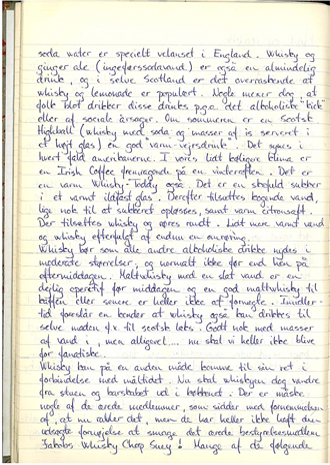 soda water er specielt velanset i England. Whisky og
ginger ale (ingefærssodavand) er også en almindelig
drink, og i selve Scotland er det overraskende at
whisky og lemonade er populært. Nogle mener dog, at
folk blot drikker disse drinks p.g.a. det alkoholiske "kick"
eller af sociale årsager. Om sommeren er en Scotsk
Highball (whisky med soda og masser af is serveret i
et højt glas) en god "varm-vejrsdrink". Det synes i
hvert fald amerikanerne. I vores lidt køligere klima er
en Irish Coffee fremragende på en vinteraften. Det er
en varm Whisky-Toddy også. Det er en skefuld sukker
i et varmt ildfast glas. Derefter tilsættes kogende vand,
lige nok til at sukkeret opløses, samt varm citronsaft.
Der tilsættes whisky og røres rundt. Lidt mere varmt vand
og whisky efterfulgt af endnu en omrøring.
Whisky bør som alle andre alkoholiske drikke nydes i
moderate størrelser, og normalt ikke før end hen på
eftermiddagen. Maltwhisky med en slat vand er en
dejlig aperitif før middagen og en god maltwhisky til
kaffen eller senere er heller ikke at fornægte. Imidler-
tid foreslår en kender at whisky også kan drikkes til
selve maden f.x. til scotsk laks. Godt nok med masser
af vand i, men alligevel.... nu skal vi heller ikke blive
for fanatiske.
Whisky kan på en anden måde komme til sin ret i
forbindelse med måltidet. Nu skal whiskyen dog vandre
fra stuen og barskabet ud i køkkenet. Der er måske
nogle af de ærede medlemmer, som sidder med fornemmelsen
af, at nu rabler det, men de har heller ikke haft den
udsøgte fornøjelse at smage det ærede bestyrelsesmedlem
Jakobs Whisky Chop Suey! Mange af de følgende